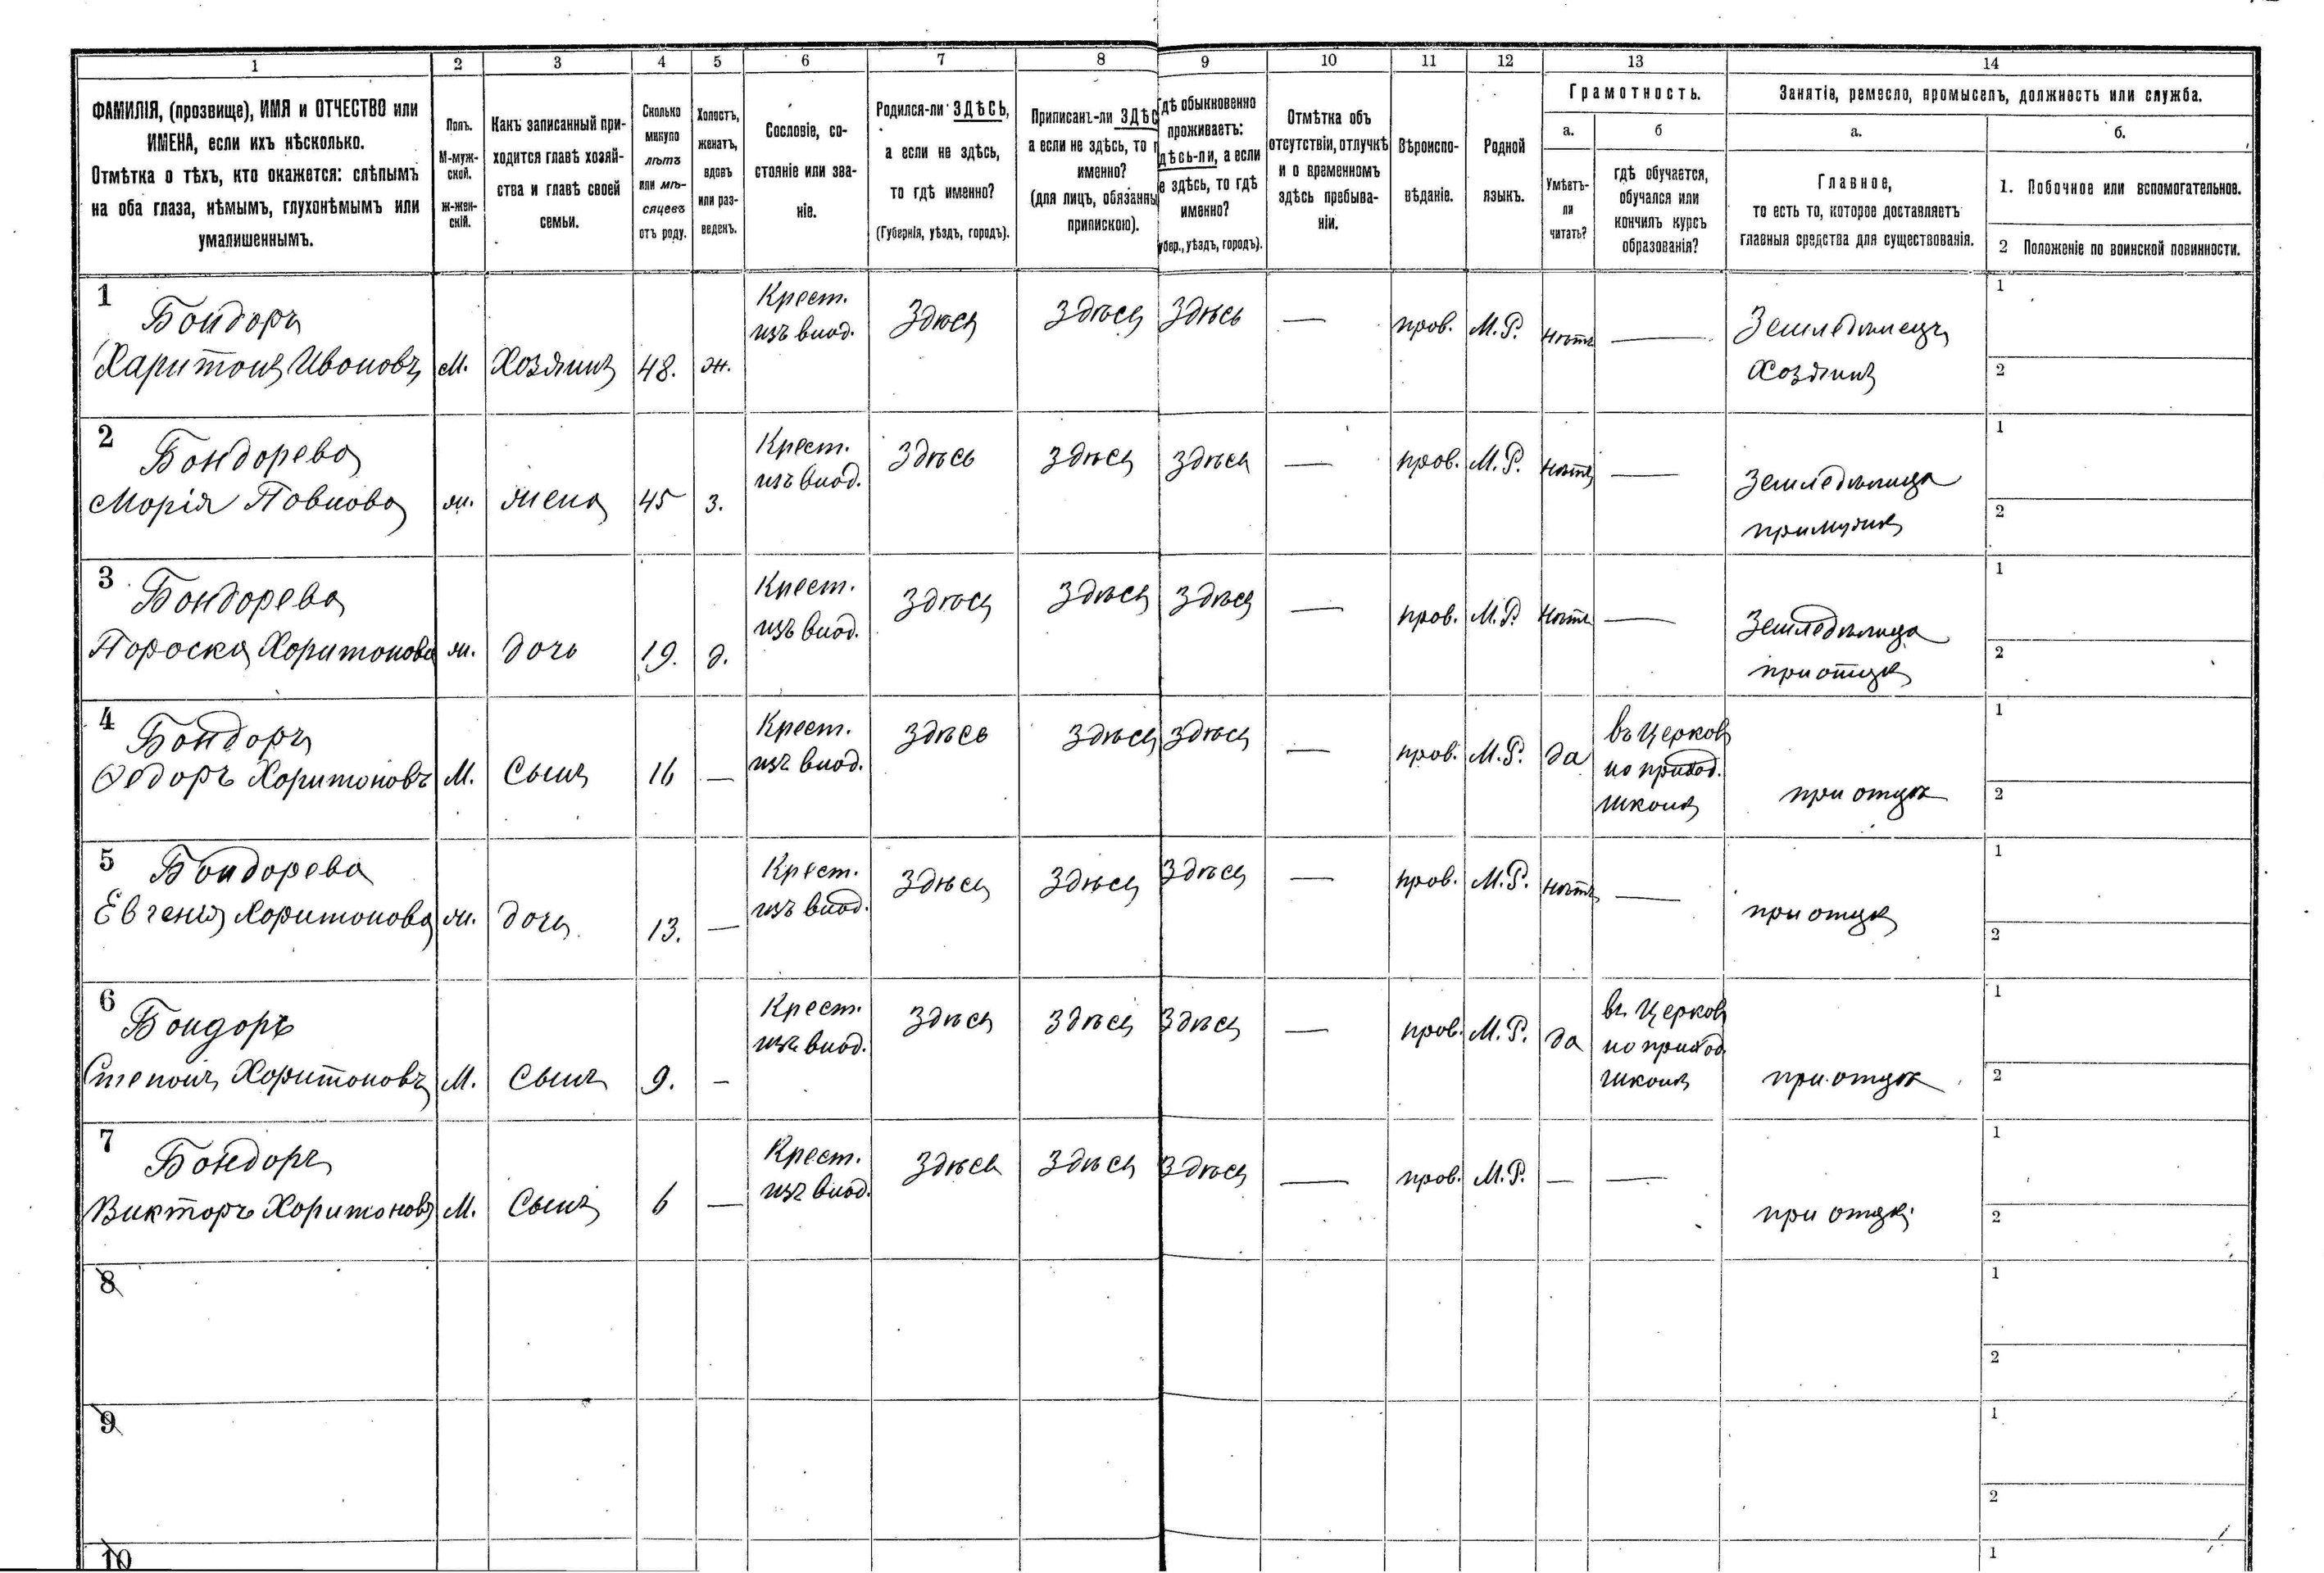 1 2 3 4 5 6 7 8 9 10 11 12 13 14
ФАМИЛІЯ, (прозвище), ИМЯ и ОТЧЕСТВО или
ИМЕНА, если ихъ нѣсколько.
Отмѣтка о тѣхъ, кто окажется: слѣпымъ
на оба глаза, нѣмымъ, глухонѣмымъ или
умалишеннымъ.
Полъ.
М-муж-
ской.
ж-жен-
скій.
Какъ записанный при-
ходится главѣ хозяй-
ства и главѣ своей
семьи.
Сколько
минуло
лѣтъ
или мѣ-
сяцевъ
отъ роду.
Холостъ,
женатъ,
вдовъ
или раз-
веденъ.
Сословіе, со-
стояніе или зва-
ніе.
Родился-ли ЗДѢСЬ,
а если не здѣсь,
то гдѣ именно?
(Губернія, уѣздъ, городъ).
Приписанъ-ли ЗДѢС
а если не здѣсь, то г
именно?
(для лицъ, обязанны
припискою).
гдѣ обыкновенно
проживаетъ:
здѣсь-ли, а если
е здѣсь, то гдѣ
именно?
убер., уѣздъ, городъ).
Отмѣтка объ
отсутствіи, отлучкѣ
и о временномъ
здѣсь пребыва-
ніи.
Вѣроиспо-
вѣданіе.
Родной
языкъ.
Грамотность.
а.
Умѣетъ-
ли
читать?
б
гдѣ обучается,
обучался или
кончилъ курсъ
образованія?
Занятіе, ремесло, промыселъ, должность или служба.
а.
Главное,
то есть то, которое доставляетъ
главныя средства для существованія.
б.
1. Побочное или вспомогательное.
2 Положеніе по воинской повинности.
1 Бондоръ
Харитонъ Ивоновъ
М. Хозяинъ 48. ж.
Крест.
изъ влад.
Здѣсь Здѣсь Здѣсь — пров. М.Р. нѣтъ —
Земледѣлецъ
Хозяинъ
1
2
2 Бондорева
Морія Повлова
ж. жена 45 з.
Крест.
изъ влад.
Здѣсь здѣсь здѣсь — пров. М.Р. нѣтъ —
Земледѣлица
при мужѣ
1
2
3 Бондорева
Пороска Хоритонова
ж. дочь 19. д.
Крест.
изъ влад.
здѣсь здѣсь здѣсь — пров. М.Р. нѣтъ —
Земледѣлица
при отцѣ
1
2
4 Бондоръ
Ѳедоръ Хоритоновъ
М. Сынъ 16 —
Крест.
изъ влад.
здѣсь здѣсь здѣсь — пров. М.Р. да
въ Церков
но приход.
школѣ
при отцѣ
1
2
5 Бондорева
Евгенія Хоритонова
ж. дочь 13. —
Крест.
изъ влад.
здѣсь здѣсь здѣсь — пров. М.Р. нѣтъ —
при отцѣ
1
2
6 Бондоръ
Степонъ Хоритоновъ
М. Сынъ 9. —
Крест.
изъ влад.
здѣсь здѣсь здѣсь — пров. М.Р. да
въ Церков
но приход.
школѣ
при отцѣ
1
2
7 Бондоръ
Викторъ Хоритоновъ
М. Сынъ 6 —
Крест.
изъ влад.
здѣсь здѣсь здѣсь — пров. М.Р. — —
при отцѣ
1
2
8
1
2
9
1
2
10
1